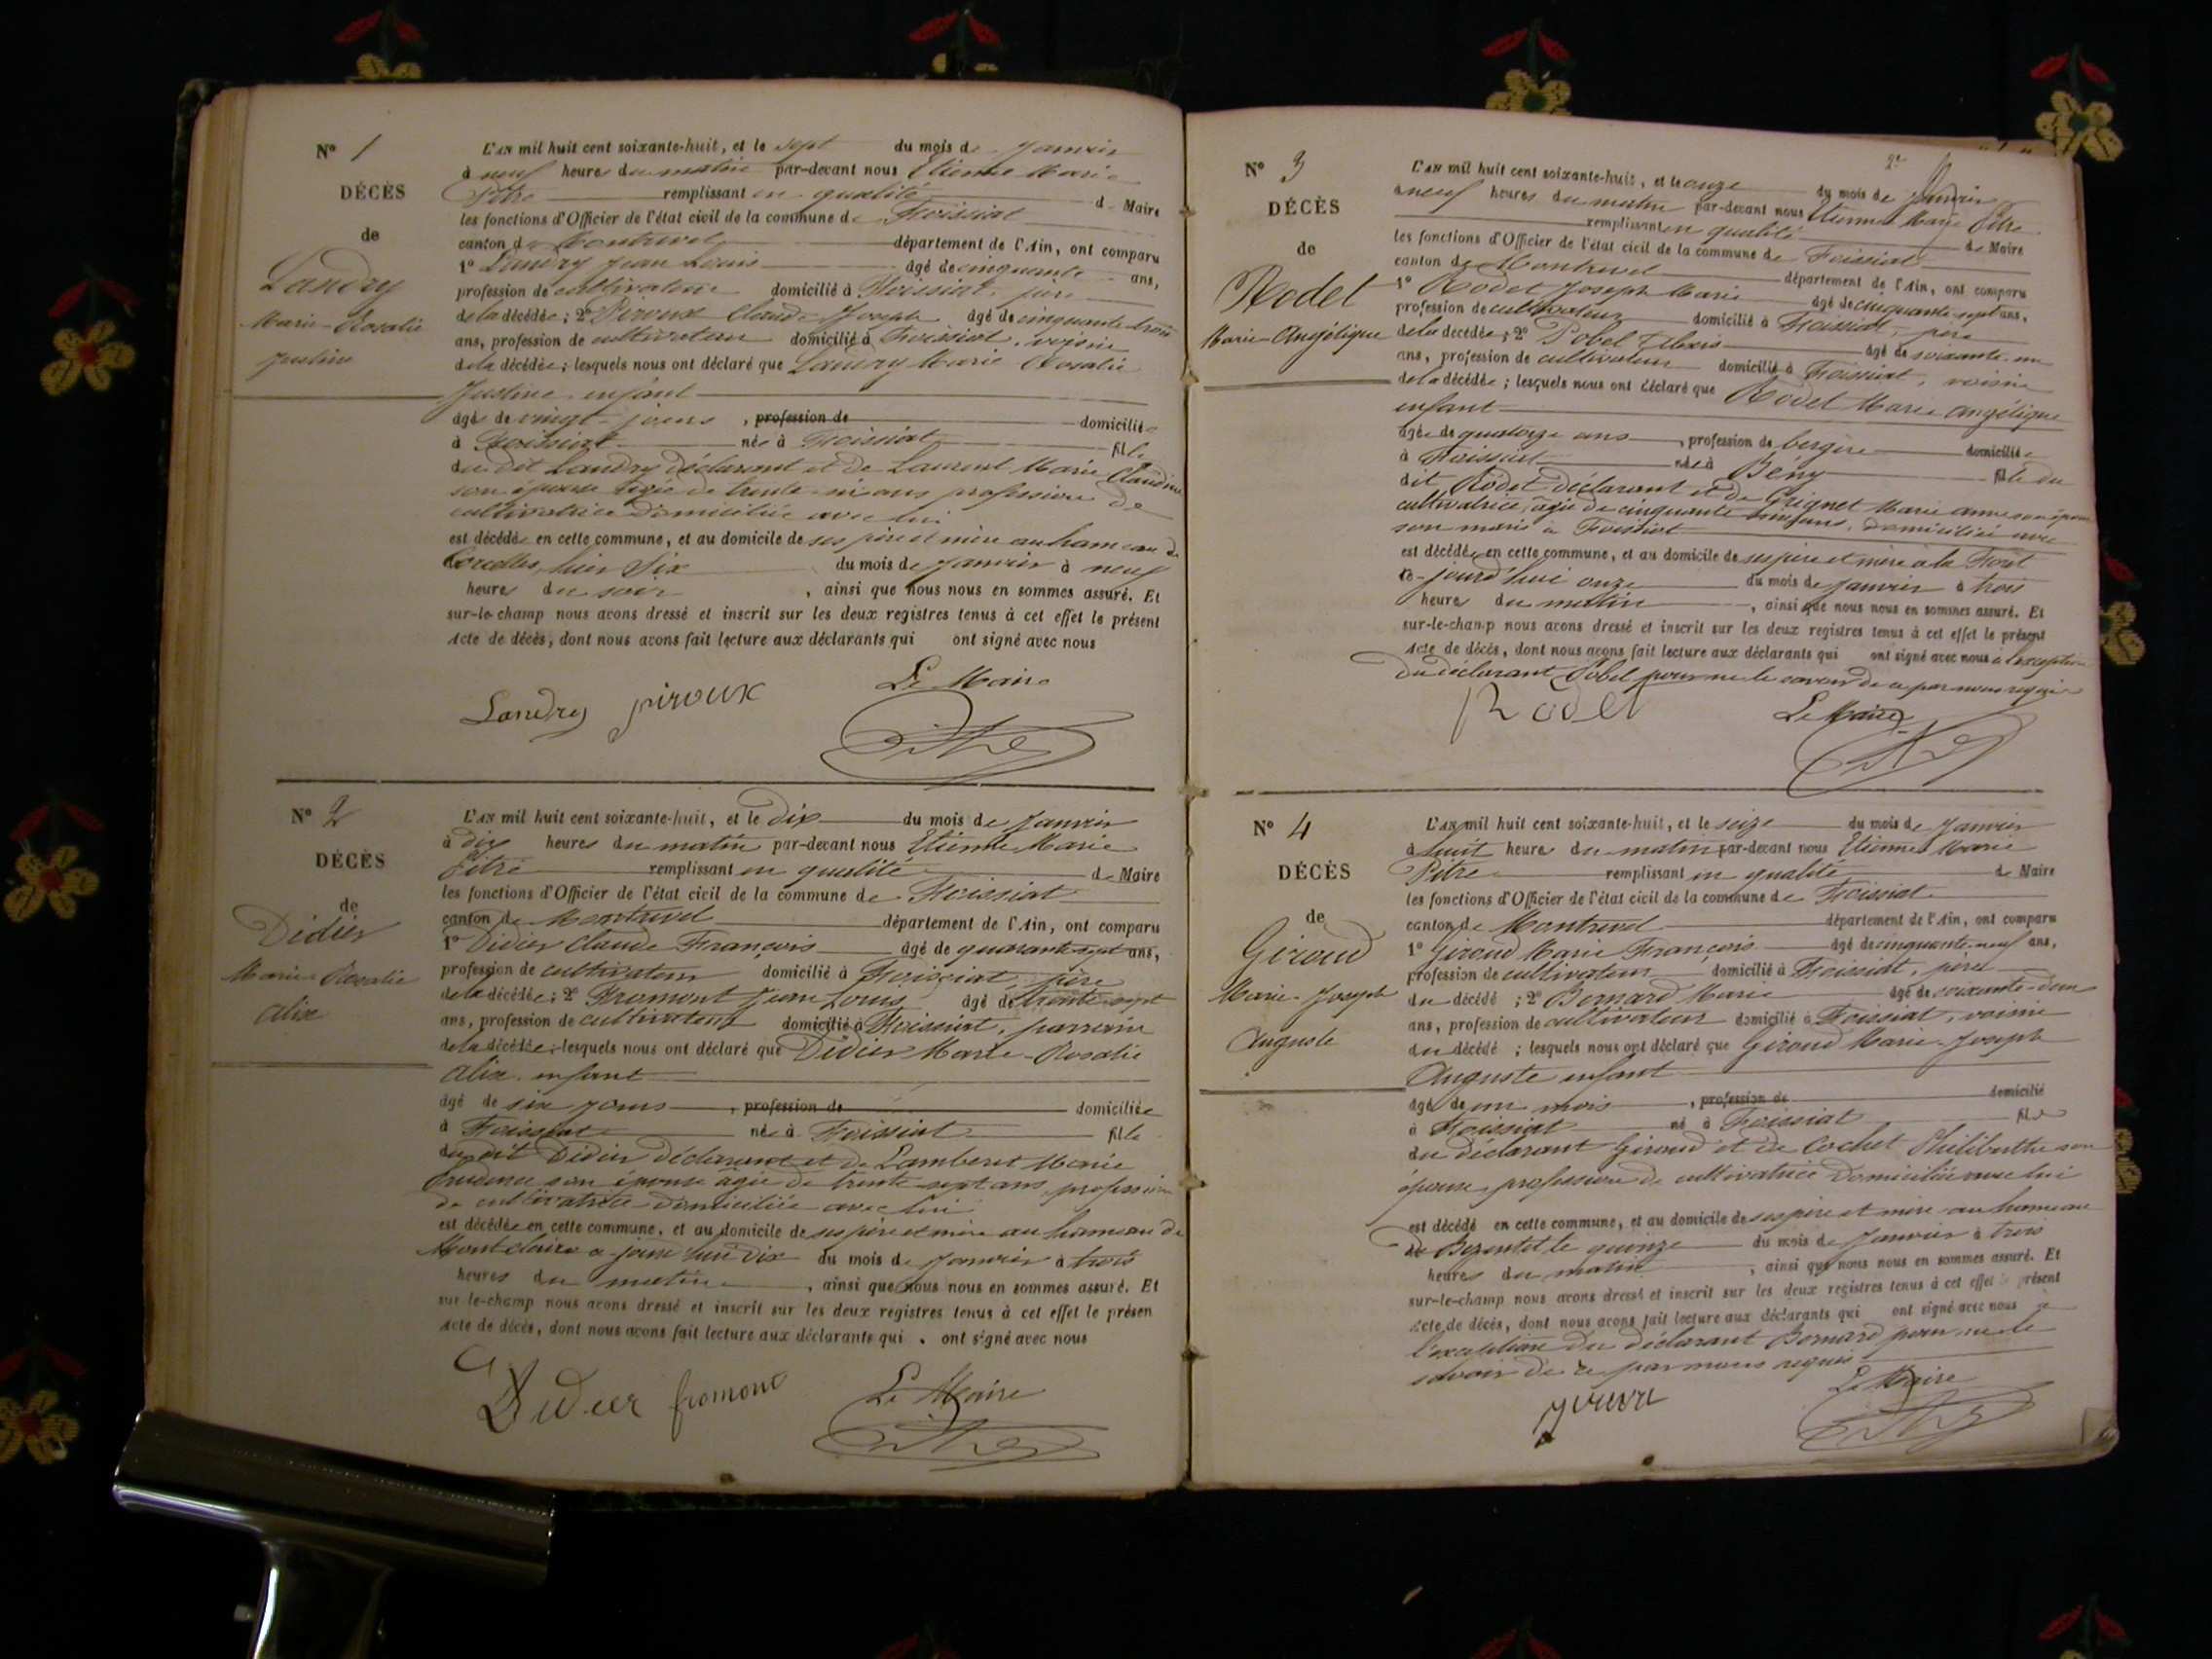 N° 1
DÉCÈS
de
Landry
Marie-Rosalie
Justine
L'AN mil huit cent soixante-huit, et le sept du mois de Janvier
à neuf heures du matin par-devant nous Etienne Marie
Pitre remplissant en qualité de Maire
les fonctions d'Officier de l'état civil de la commune de Foissiat
canton de Montrevel département de l'Ain, ont comparu
1° Landry Jean Louis âgé de cinquante ans,
profession de cultivateur domicilié à Foissiat, père
de la décédée; 2° Piroux Claude Joseph âgé de cinquante trois
ans, profession de cultivateur domicilié à Foissiat, voisin
de la décédée; lesquels nous ont déclaré que Landry Marie Rosalie
Justine enfant
âgée de vingt jours, profession de domiciliée
à Foissiat née à Foissiat fille
du dit Landry déclarant et de Laurent Marie Claudine
son épouse âgée de trente six ans profession de
cultivatrice domiciliée avec lui
est décédée en cette commune, et au domicile de ses père et mère au hameau de
Corcelles, hier six du mois de Janvier à neuf
heures du soir, ainsi que nous nous en sommes assuré. Et
sur-le-champ nous avons dressé et inscrit sur les deux registres tenus à cet effet le présent
Acte de décès, dont nous avons fait lecture aux déclarants qui ont signé avec nous
Le Maire
Landry piroux
Pitre
N° 2
DÉCÈS
de
Didier
Marie-Rosalie
Alix
L'AN mil huit cent soixante-huit, et le dix du mois de Janvier
à dix heures du matin par-devant nous Etienne Marie
Pitre remplissant en qualité de Maire
les fonctions d'Officier de l'état civil de la commune de Foissiat
canton de Montrevel département de l'Ain, ont comparu
1° Didier Claude François âgé de quarante-sept ans,
profession de cultivateur domicilié à Foissiat, père
de la décédée; 2° Fromont Jean Louis âgé de trente-sept
ans, profession de cultivateur domicilié à Foissiat, parrain
de la décédée; lesquels nous ont déclaré que Didier Marie-Rosalie
Alix enfant
âgé de six jours, profession de domiciliée
à Foissiat née à Foissiat fille
du dit Didier déclarant et de Lamberet Marie
Prudence son épouse âgée de trente-sept ans, profession
de cultivatrice domiciliée avec lui
est décédée en cette commune, et au domicile de ses père et mère au hameau de
Montclaire a jourd'hui dix du mois de Janvier à trois
heures du matin, ainsi que nous nous en sommes assuré. Et
sur-le-champ nous avons dressé et inscrit sur les deux registres tenus à cet effet le présen
Acte de décès, dont nous avons fait lecture aux déclarants qui ont signé avec nous
Didier fromont Le Maire
Pitre
N° 3
DÉCÈS
de
Rodet
Marie-Angélique
L'AN mil huit cent soixante-huit, et le onze du mois de Janvier
à neuf heures du matin par-devant nous Etienne Marie Pitre
remplissant en qualité de Maire
les fonctions d'Officier de l'état civil de la commune de Foissiat
canton de Montrevel département de l'Ain, ont comparu
1° Rodet Joseph Marie âgé de cinquante-sept ans,
profession de cultivateur domicilié à Foissiat, père
de la décédée; 2° Pobel Alexis âgé de soixante-un
ans, profession de cultivateur domicilié à Foissiat, voisin
de la décédée; lesquels nous ont déclaré que Rodet Marie Angélique
enfant
âgée de quatorze ans, profession de bergère domiciliée
à Foissiat née à Bény fille du
dit Rodet déclarant et de Grignet Marie Anne son épouse
cultivatrice, âgée de cinquante ans, domiciliée avec
son mari à Foissiat
est décédée en cette commune, et au domicile de ses père et mère à la Forêt
ce-jourd'hui onze du mois de Janvier à trois
heures du matin, ainsi que nous nous en sommes assuré. Et
sur-le-champ nous avons dressé et inscrit sur les deux registres tenus à cet effet le présent
Acte de décès, dont nous avons fait lecture aux déclarants qui ont signé avec nous à l'exception
du déclarant Pobel pour ne le savoir de ce par nous requis
Rodet Le Maire
Pitre
N° 4
DÉCÈS
de
Giroud
Marie-Joseph
Auguste
L'AN mil huit cent soixante-huit, et le seize du mois de Janvier
à huit heures du matin par-devant nous Etienne Marie
Pitre remplissant en qualité de Maire
les fonctions d'Officier de l'état civil de la commune de Foissiat
canton de Montrevel département de l'Ain, ont comparu
1° Giroud Marie François âgé de cinquante-neuf ans,
profession de cultivateur domicilié à Foissiat, père
du décédé; 2° Bernard Marie âgé de soixante-deux
ans, profession de cultivateur domicilié à Foissiat, voisin
du décédé; lesquels nous ont déclaré que Giroud Marie-Joseph
Auguste enfant
âgé de un mois, profession de domicilié
à Foissiat né à Foissiat fils
du déclarant Giroud et de Cochet Philiberthe son
épouse, profession de cultivatrice domiciliée avec lui
est décédé en cette commune, et au domicile de ses père et mère au hameau
de Bezentet le quinze du mois de Janvier à trois
heures du matin, ainsi que nous nous en sommes assuré. Et
sur-le-champ nous avons dressé et inscrit sur les deux registres tenus à cet effet le présent
Acte de décès, dont nous avons fait lecture aux déclarants qui ont signé avec nous à
l'exception du déclarant Bernard pour ne le
savoir de ce par nous requis
Le Maire
Pitre